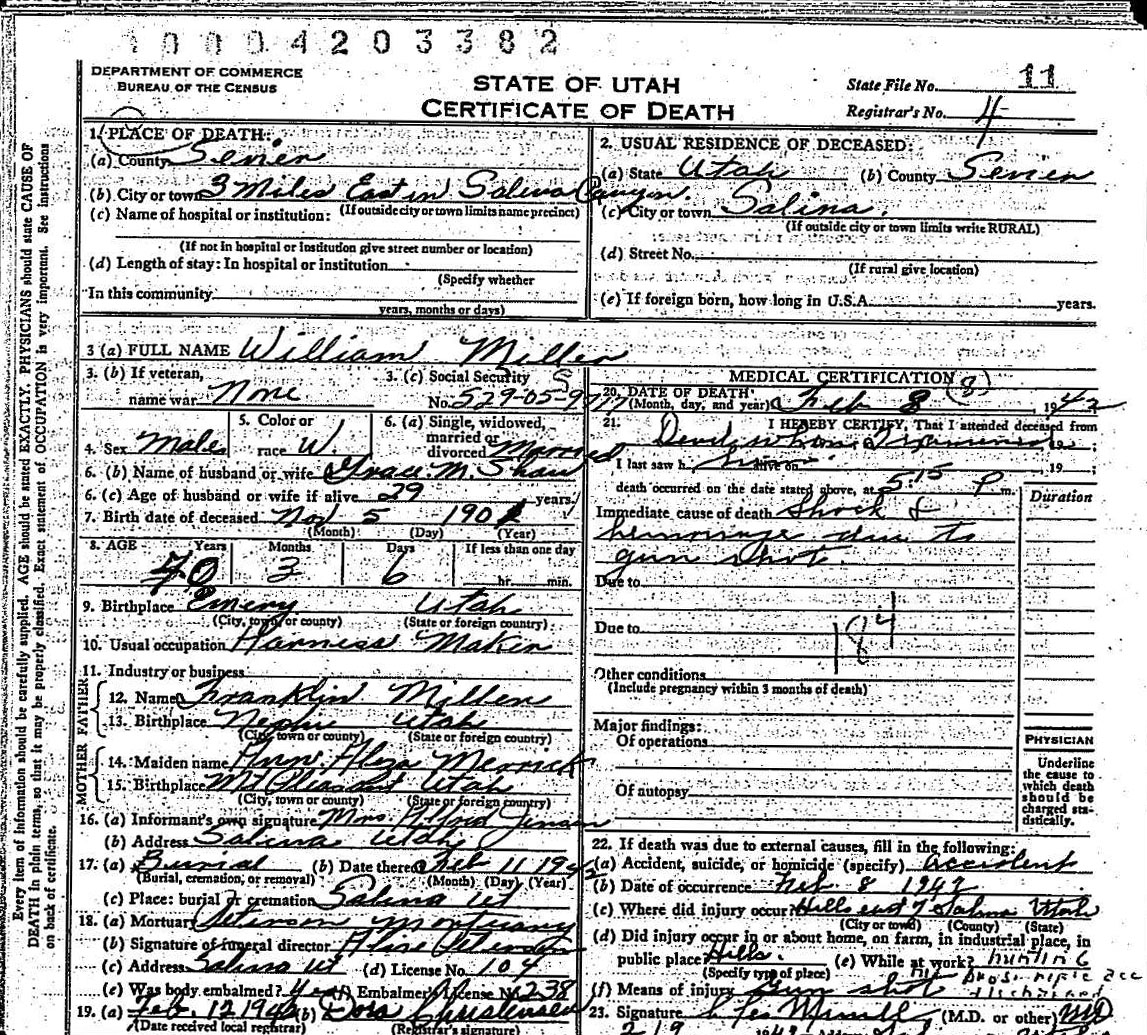 10004203382
DEPARTMENT OF COMMERCE
BUREAU OF THE CENSUS
STATE OF UTAH
CERTIFICATE OF DEATH
State File No. 11
Registrar's No. 4
Every item of information should be carefully supplied. AGE should be stated EXACTLY. PHYSICIANS should state CAUSE OF
DEATH in plain terms, so that it may be properly classified. Exact statement of OCCUPATION is very important. See instructions
on back of certificate.
1. PLACE OF DEATH:
(a) County Sevier
(b) City or town 3 Miles East in Salina Canyon.
(c) Name of hospital or institution: (If outside city or town limits name precinct)
(If not in hospital or institution give street number or location)
(d) Length of stay: In hospital or institution
(Specify whether
In this community
years, months or days)
2. USUAL RESIDENCE OF DECEASED:
(a) State Utah (b) County Sevier
(c) City or town Salina.
(If outside city or town limits write RURAL)
(d) Street No.
(If rural give location)
(e) If foreign born, how long in U.S.A. years.
3 (a) FULL NAME William Miller
3. (b) If veteran,
name war None
3. (c) Social Security
No. 529-05-9777
4. Sex Male
5. Color or
race W.
6. (a) Single, widowed,
married or
divorced Married
6. (b) Name of husband or wife Grace M. Shaw
6. (c) Age of husband or wife if alive 29 years
7. Birth date of deceased Nov 5 1901
(Month) (Day) (Year)
8. AGE Years Months Days If less than one day
40 3 6 hr. min.
9. Birthplace Emery Utah
(City, town or county) (State or foreign country)
10. Usual occupation Harness Maker
11. Industry or business
FATHER
12. Name Franklin Miller
13. Birthplace Nephi Utah
(City, town or county) (State or foreign country)
MOTHER
14. Maiden name Merrick
15. Birthplace Mt Pleasant Utah
(City, town or county) (State or foreign country)
16. (a) Informant's own signature Mrs. Alfred Jensen
(b) Address Salina Utah
17. (a) Burial (b) Date thereof Feb 11 1942
(Burial, cremation, or removal) (Month) (Day) (Year)
(c) Place: burial or cremation Salina Ut
18. (a) Mortuary Peterson Mortuary
(b) Signature of funeral director Peterson
(c) Address Salina Ut (d) License No. 104
(e) Was body embalmed? Yes (f) Embalmer's License No. 238
19. (a) Feb. 12 1942 (b) Christensen
(Date received local registrar) (Registrar's signature)
MEDICAL CERTIFICATION (8)
20. DATE OF DEATH
(Month, day, and year) Feb 8, 1942
21. I HEREBY CERTIFY, That I attended deceased from
Dead when Examined 19 ;
I last saw h him alive on , 19 ;
death occurred on the date stated above, at 5:15 P m.
Duration
Immediate cause of death Shock &
hemorrage due to
gun shot.
Due to
Due to
184
Other conditions
(Include pregnancy within 3 months of death)
Major findings:
Of operations
Of autopsy
PHYSICIAN
Underline
the cause to
which death
should be
charged sta-
tistically.
22. If death was due to external causes, fill in the following:
(a) Accident, suicide, or homicide (specify) Accident
(b) Date of occurrence Feb 8 1942
(c) Where did injury occur? Hills east of Salina Utah
(City or town) (County) (State)
(d) Did injury occur in or about home, on farm, in industrial place, in
public place? Hills. (e) While at work? hunting
(Specify type of place)
(f) Means of injury Gun shot
23. Signature (M.D. or other) MD